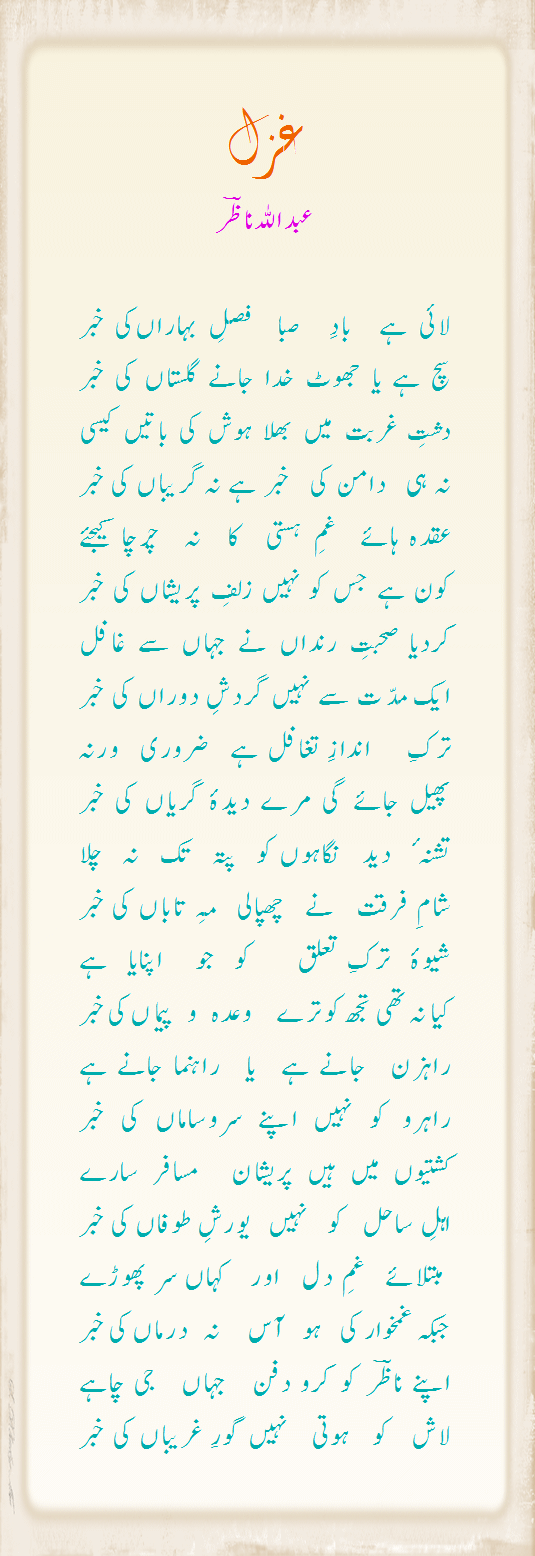 غزل
عبداللہ ناظرؔ
لائی ہے بادِ صبا فصلِ بہاراں کی خبر
سچ ہے یا جھوٹ خدا جانے گلستاں کی خبر
دشتِ غربت میں بھلا ہوش کی باتیں کیسی
نہ ہی دامن کی خبر ہے نہ گریباں کی خبر
عقدہ ہائے غمِ ہستی کا نہ چرچا کیجئے
کون ہے جس کو نہیں زلفِ پریشاں کی خبر
کردیا صحبتِ رنداں نے جہاں سے غافل
ایک مدّت سے نہیں گردشِ دوراں کی خبر
ترکِ اندازِ تغافل ہے ضروری ورنہ
پھیل جائے گی مرے دیدۂ گریاں کی خبر
تشنہٴ دید نگاہوں کو پتہ تک نہ چلا
شامِ فرقت نے چھپالی مہِ تاباں کی خبر
شیوۂ ترکِ تعلق کو جو اپنایا ہے
کیا نہ تھی تجھ کو ترے وعدہ و پیماں کی خبر
راہزن جانے ہے یا راہنما جانے ہے
راہرو کو نہیں اپنے سروساماں کی خبر
کشتیوں میں ہیں پریشان مسافر سارے
اہلِ ساحل کو نہیں یورشِ طوفاں کی خبر
مبتلائے غمِ دل اور کہاں سر پھوڑے
جبکہ غمخوار کی ہو آس نہ درماں کی خبر
اپنے ناظرؔ کو کرو دفن جہاں جی چاہے
لاش کو ہوتی نہیں گورِ غریباں کی خبر